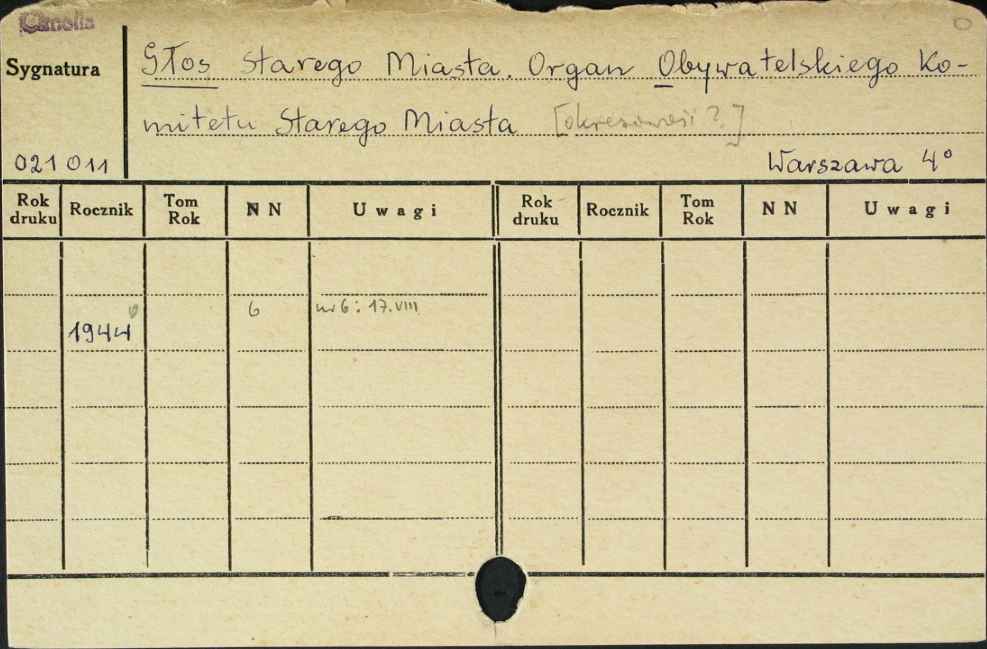 Sygnatura
Głos Starego Miasta. Organ Obywatelskiego Ko-
mitetu Starego Miasta
021011
Warszawa 4°
Rok druku Rocznik Tom Rok N N Uwagi Rok druku Rocznik Tom Rok N N Uwagi
1944 6 nr 6: 17.VIII